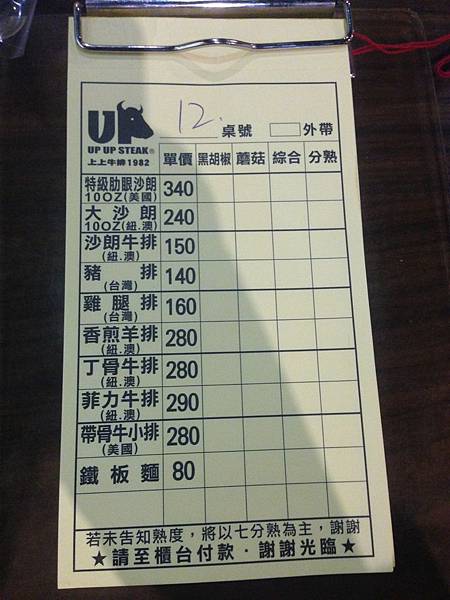 UP
UP UP STEAK®
上上牛排1982
12. 桌號 外帶
單價 黑胡椒 蘑菇 綜合 分熟
特級肋眼沙朗 340
10OZ(美國)
大沙朗 240
10OZ(紐.澳)
沙朗牛排 150
(紐.澳)
豬排 140
(台灣)
雞腿排 160
(台灣)
香煎羊排 280
(紐.澳)
丁骨牛排 280
(紐.澳)
菲力牛排 290
(紐.澳)
帶骨牛小排 280
(美國)
鐵板麵 80
若未告知熟度，將以七分熟為主，謝謝
★請至櫃台付款·謝謝光臨★